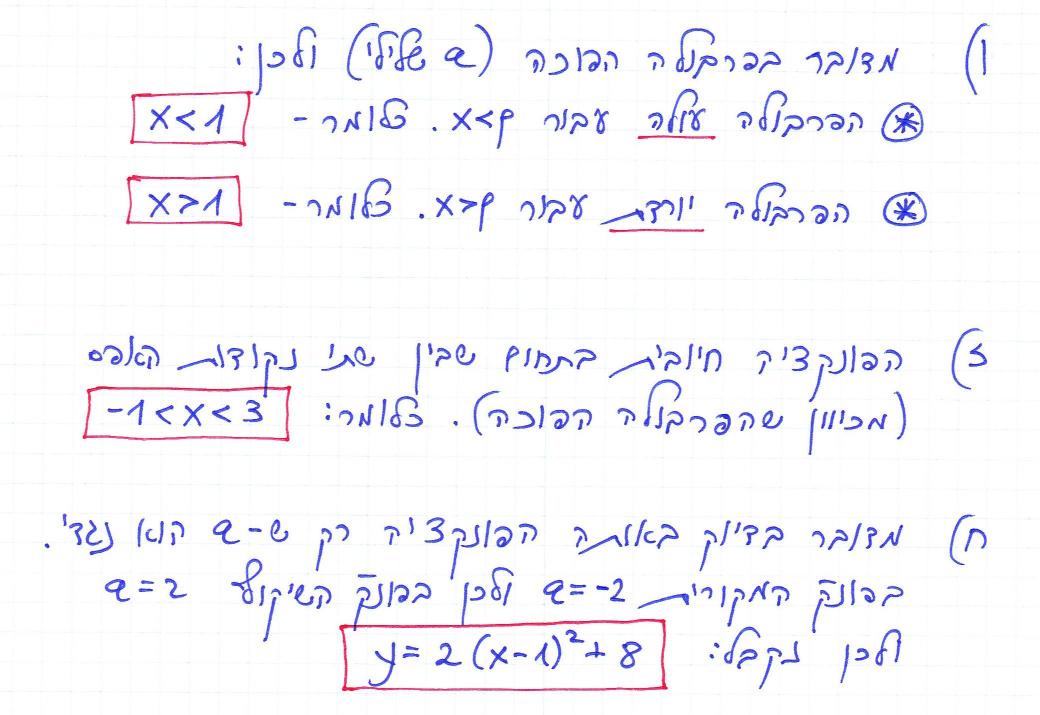 ו) מדובר בפרבולה הפוכה (a שלילי) ולכן:
* הפרבולה עולה עבור x<p. כלומר - x<1
* הפרבולה יורדת עבור x>p. כלומר - x>1
ז) הפונקציה חיובית בתחום שבין שתי נקודות האפס
(מכיוון שהפרבולה הפוכה). כלומר: -1<x<3
ח) מדובר בדיוק באותה הפונקציה רק ש-a הוא נגדי.
בפונק' המקורית a=-2 ולכן בפונק' השיקוף a=2
ולכן נקבל: y=2(x-1)²+8